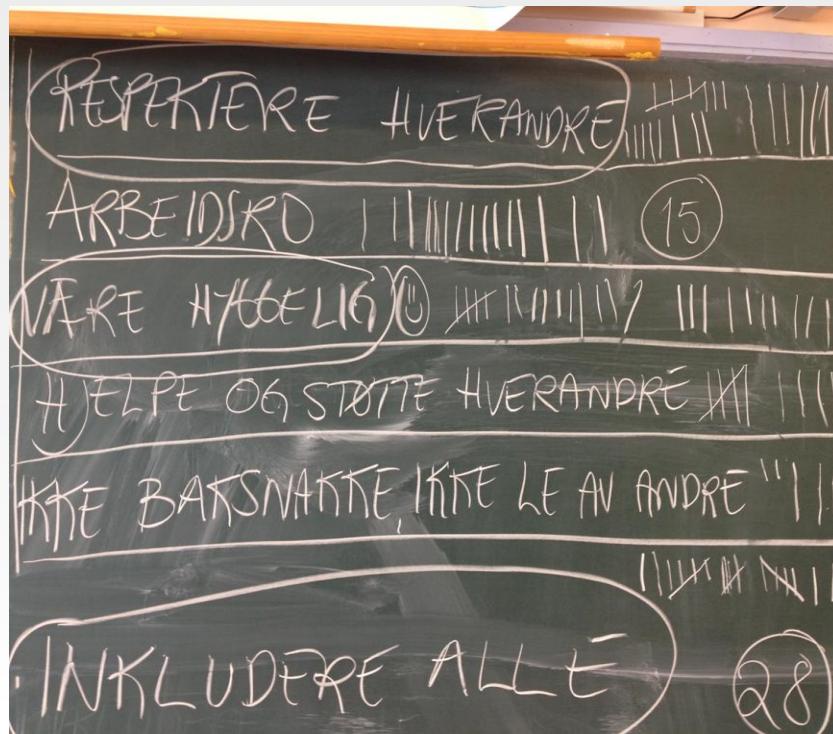 RESPEKTERE HVERANDRE
ARBEIDSRO 15
VÆRE HYGGELIG
HJELPE OG STØTTE HVERANDRE
IKKE BAKSNAKKE, IKKE LE AV ANDRE
INKLUDERE ALLE 28